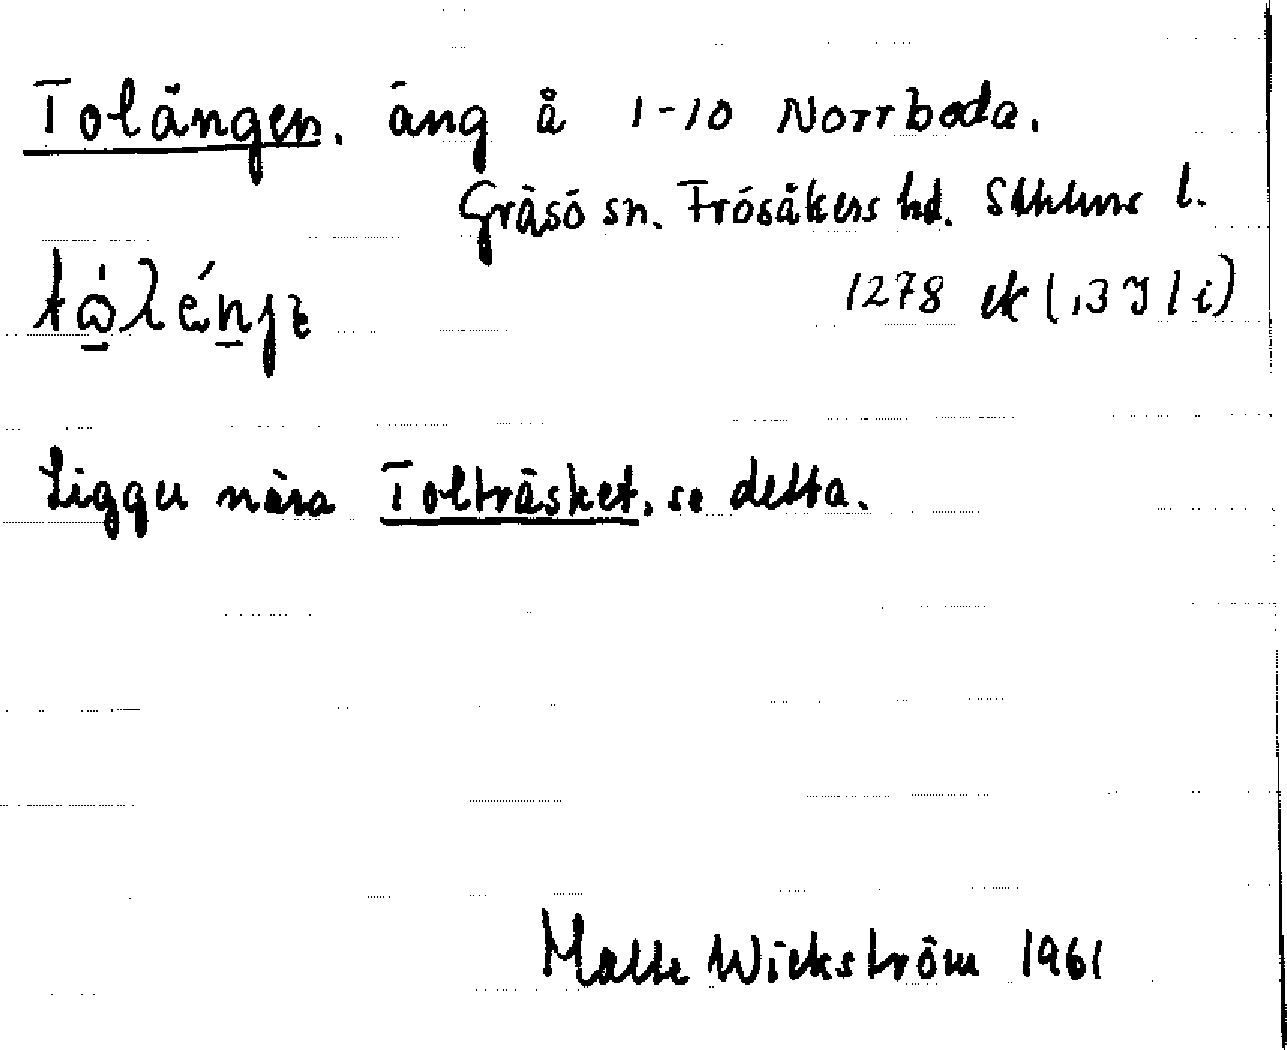 Tolängen. äng å 1-10 Norrboda.
Gräsö sn. Frösåkers hd. Sthlms l.
1278 ek (13 I 1 i)
Ligger nära Tolträsket, se detta.
Malte Wickström 1961